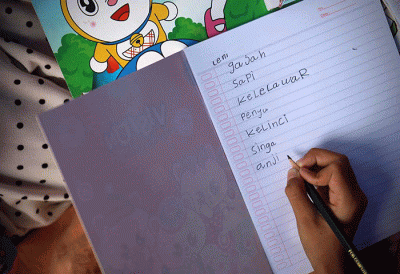 Leni
gajah
sapi
KeleLawaR
Penyu
KeLinCi
Singa
anji